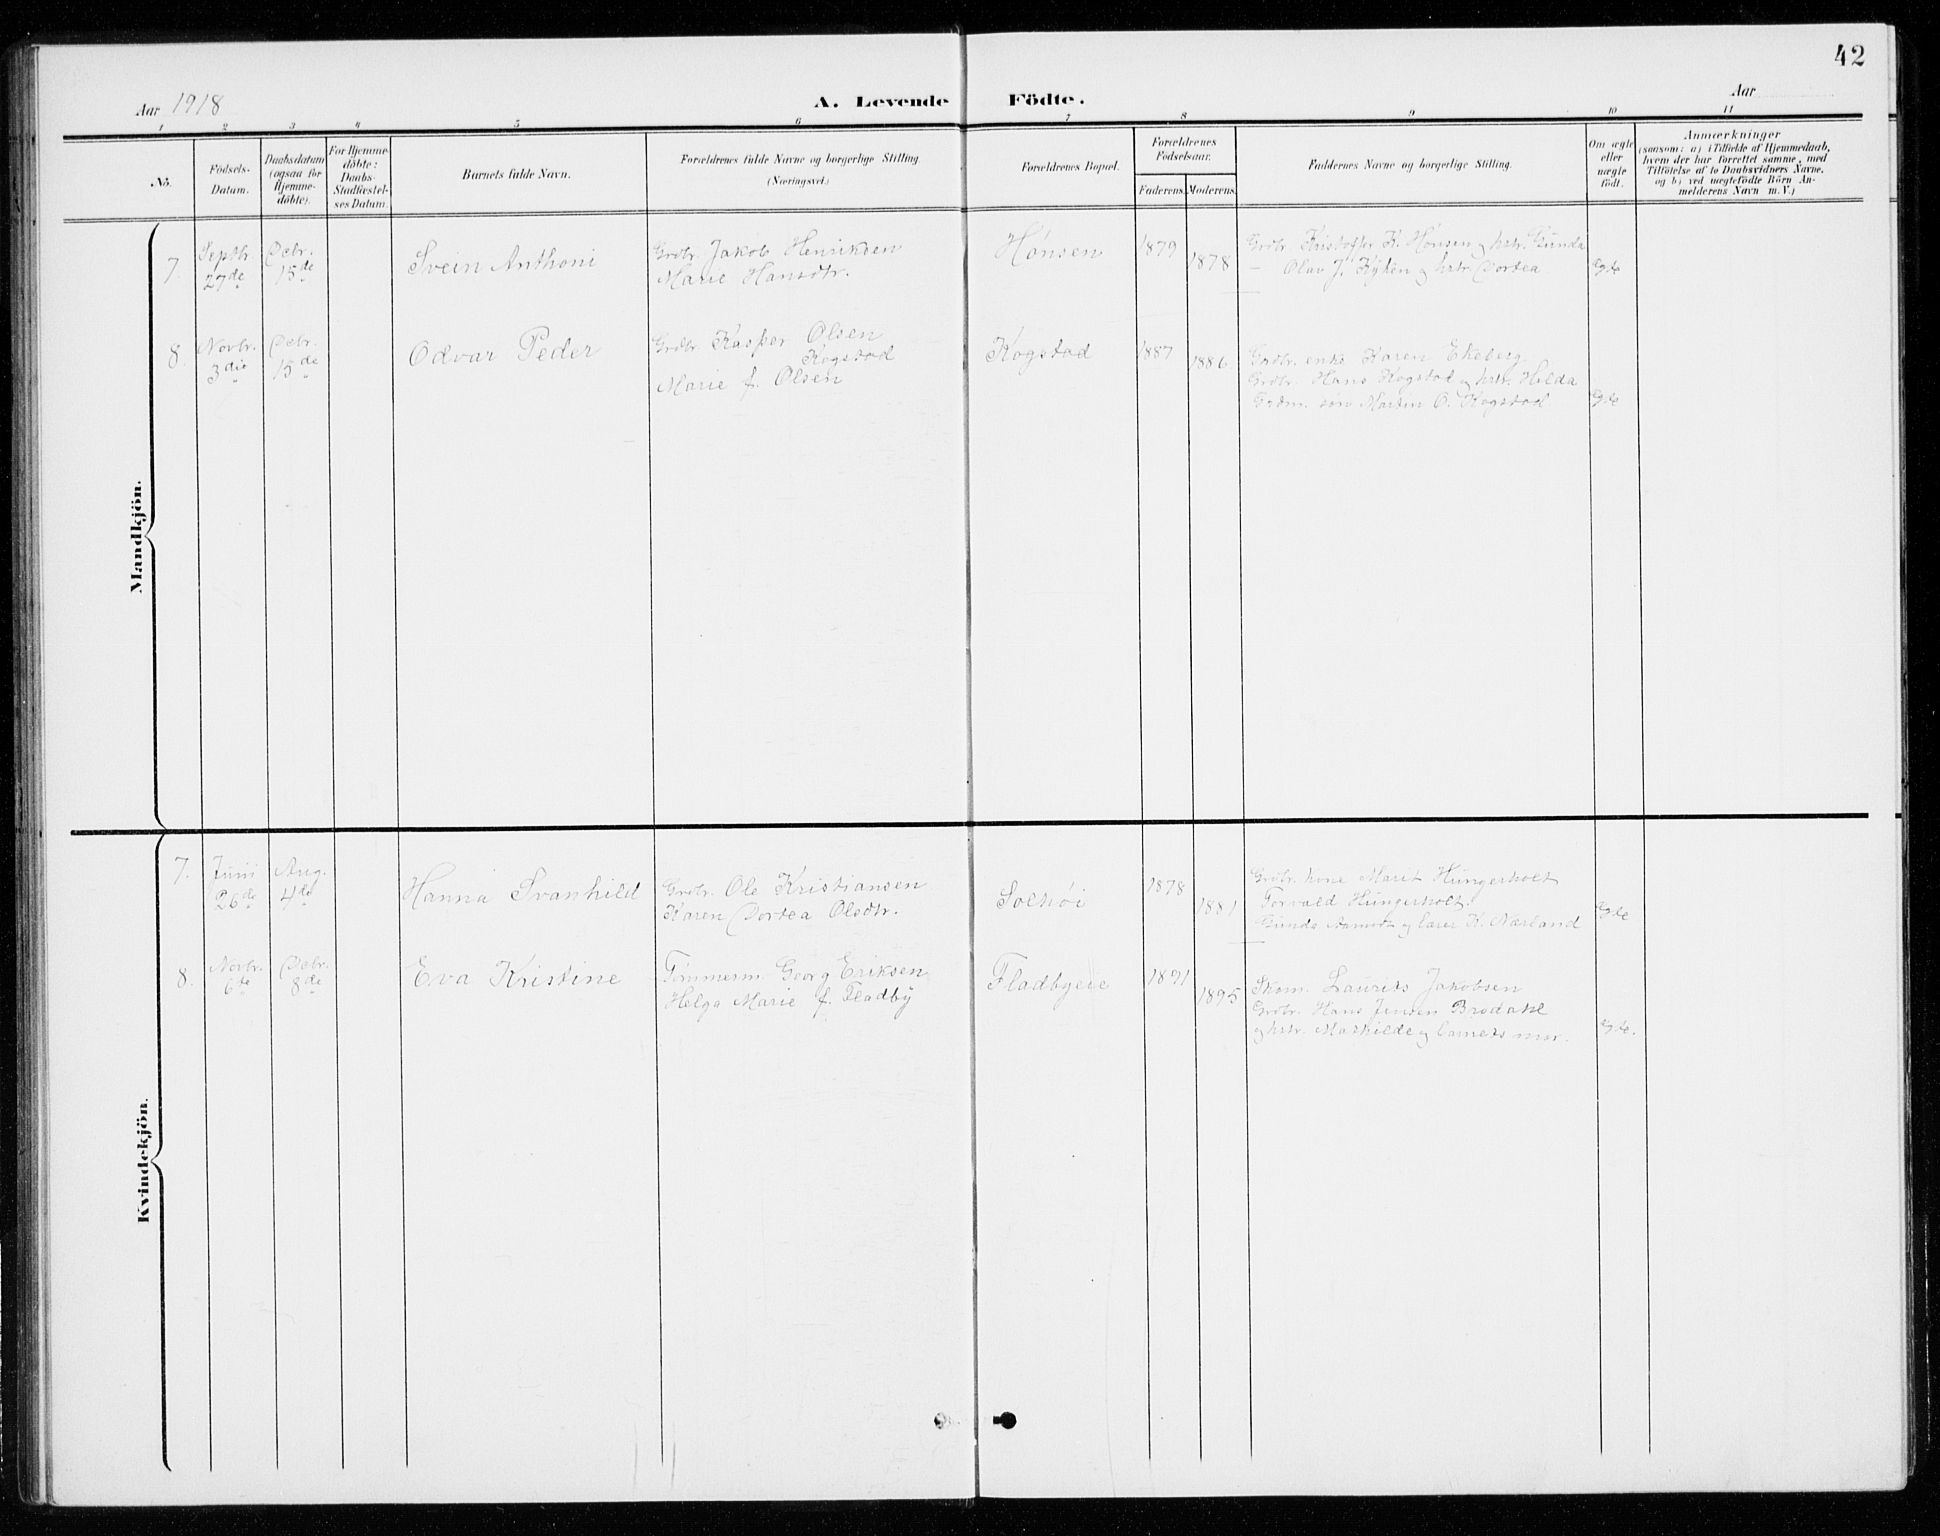 42
Aar 1918
A. Levende Födte.
Aar
1 2 3 4 5 6 7 8 9 10 11
No.
Födsels-
Datum.
Daabsdatum
(ogsaa for
Hjemme-
döbte).
For Hjemme-
döbte:
Daabs-
Stadfæstel-
ses Datum.
Barnets fulde Navn.
Forældrenes fulde Navne og borgerlige Stilling.
(Næringsvei.)
Forældrenes Bopæl.
Forældrenes
Fødselsaar.
Faderens. Moderens.
Faddernes Navne og borgerlige Stilling.
Om ægte
eller
uægte
födt.
Anmærkninger
(saasom: a) i Tilfælde af Hjemmedaab,
hvem der har forrettet samme, med
Tilföielse af to Daabsvidners Navne,
og b) ved uægtefödte Börn An-
melderens Navn m. V.)
Mandkjön.
7.
Septbr.
27de
Debr.
15de
Svein Anthoni
Grdbr. Jakob Henriksen
Marie Hansdtr.
Hønsen
1879
1878
Grdbr. Kristoffer K. Hønsen og hstr. Gunda
— Olav J. Kyken og hstr. Dortea
Egte
8.
Novbr.
3die
Debr.
15de
Odvar Peder
Grdbr. Kasper Olsen
Kogstad
Marie f. Olsen
Kogstad
1887
1886.
Grdbr. enke Karen Ekeberg.
Grdbr. Hans Kogstad og hstr. Hilda
Grdm. søn Martin O. Kogstad.
Egte
Kvindekjön.
7.
Juni
26de
Aug.
4de
Hanna Svanhild
Grdbr. Ole Kristiansen
Karen Dortea Olsdtr.
Solhøi
1878
1881
Grdbr. kone Marit Hungerholt
Torvald Hungerholt.
Gunda Aamodt og lærer K. Nærland
Egte
8.
Novbr.
6te
Debr.
8de
Eva Kristine
Tømmerm. Georg Eriksen
Helga Marie f. Fladby
Fladbyeie
1891
1895
Skom. Laurits Jakobsen
Grdbr. Hans Jensen Brodahl
og hstr. Mathilde og barnets mor.
Egte.